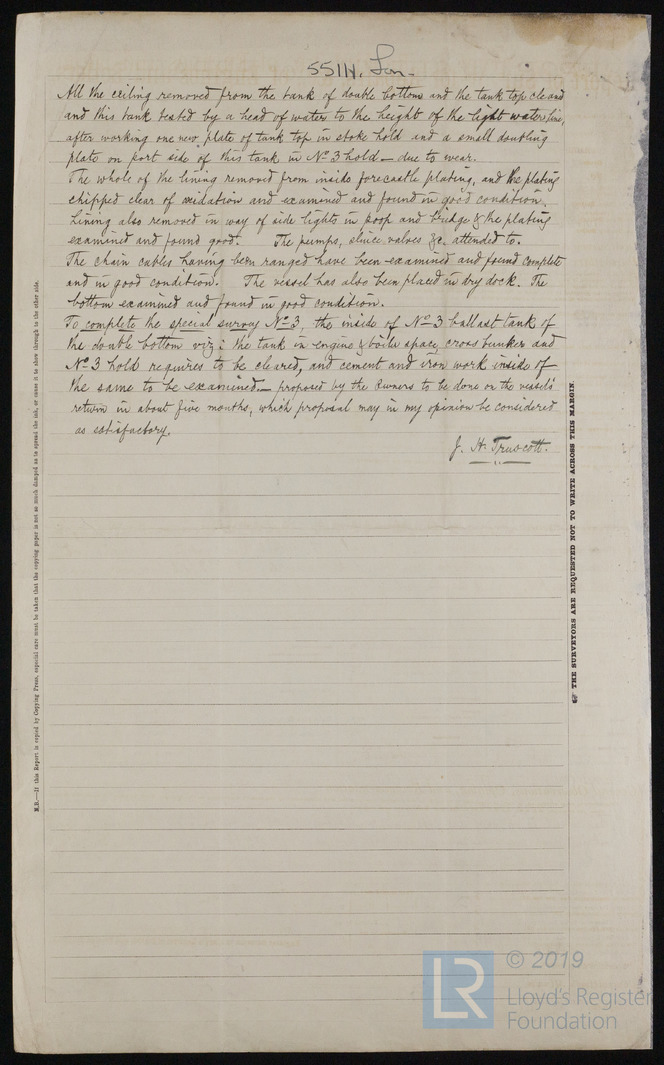 55114. Lon.
All the ceiling removed from the tank of double bottom and the tank top cleaned
and this tank tested by a head of water to the height of the light water line,
after working one new plate of tank top in stoke hold and a small doubling
plate on port side of this tank in No 3 hold — due to wear.
The whole of the lining removed from inside forecastle plating, and the plating
chipped clear of oxidation and examined and found in good condition.
Lining also removed in way of side lights in poop and bridge & the plating
examined and found good. The pumps, sluice valves &c. attended to.
The chain cables having been ranged have been examined and found complete
and in good condition. The vessel has also been placed in dry dock. The
bottom examined and found in good condition.
To complete the special survey No 3, the inside of No 3 ballast tank of
the double bottom viz: the tank in engine & boiler space, cross bunker and
No 3 hold requires to be cleared, and cement and iron work inside of
the same to be examined — proposed by the Owners to be done on the vessels'
return in about five months, which proposal may in my opinion be considered
as satisfactory.
J. H. Truscott.
N.B.—If this Report is copied by Copying Press, especial care must be taken that the copying paper is not so much damped as to spread the ink, or cause it to show through to the other side.
THE SURVEYORS ARE REQUESTED NOT TO WRITE ACROSS THIS MARGIN.
LR
© 2019
Lloyd's Register
Foundation